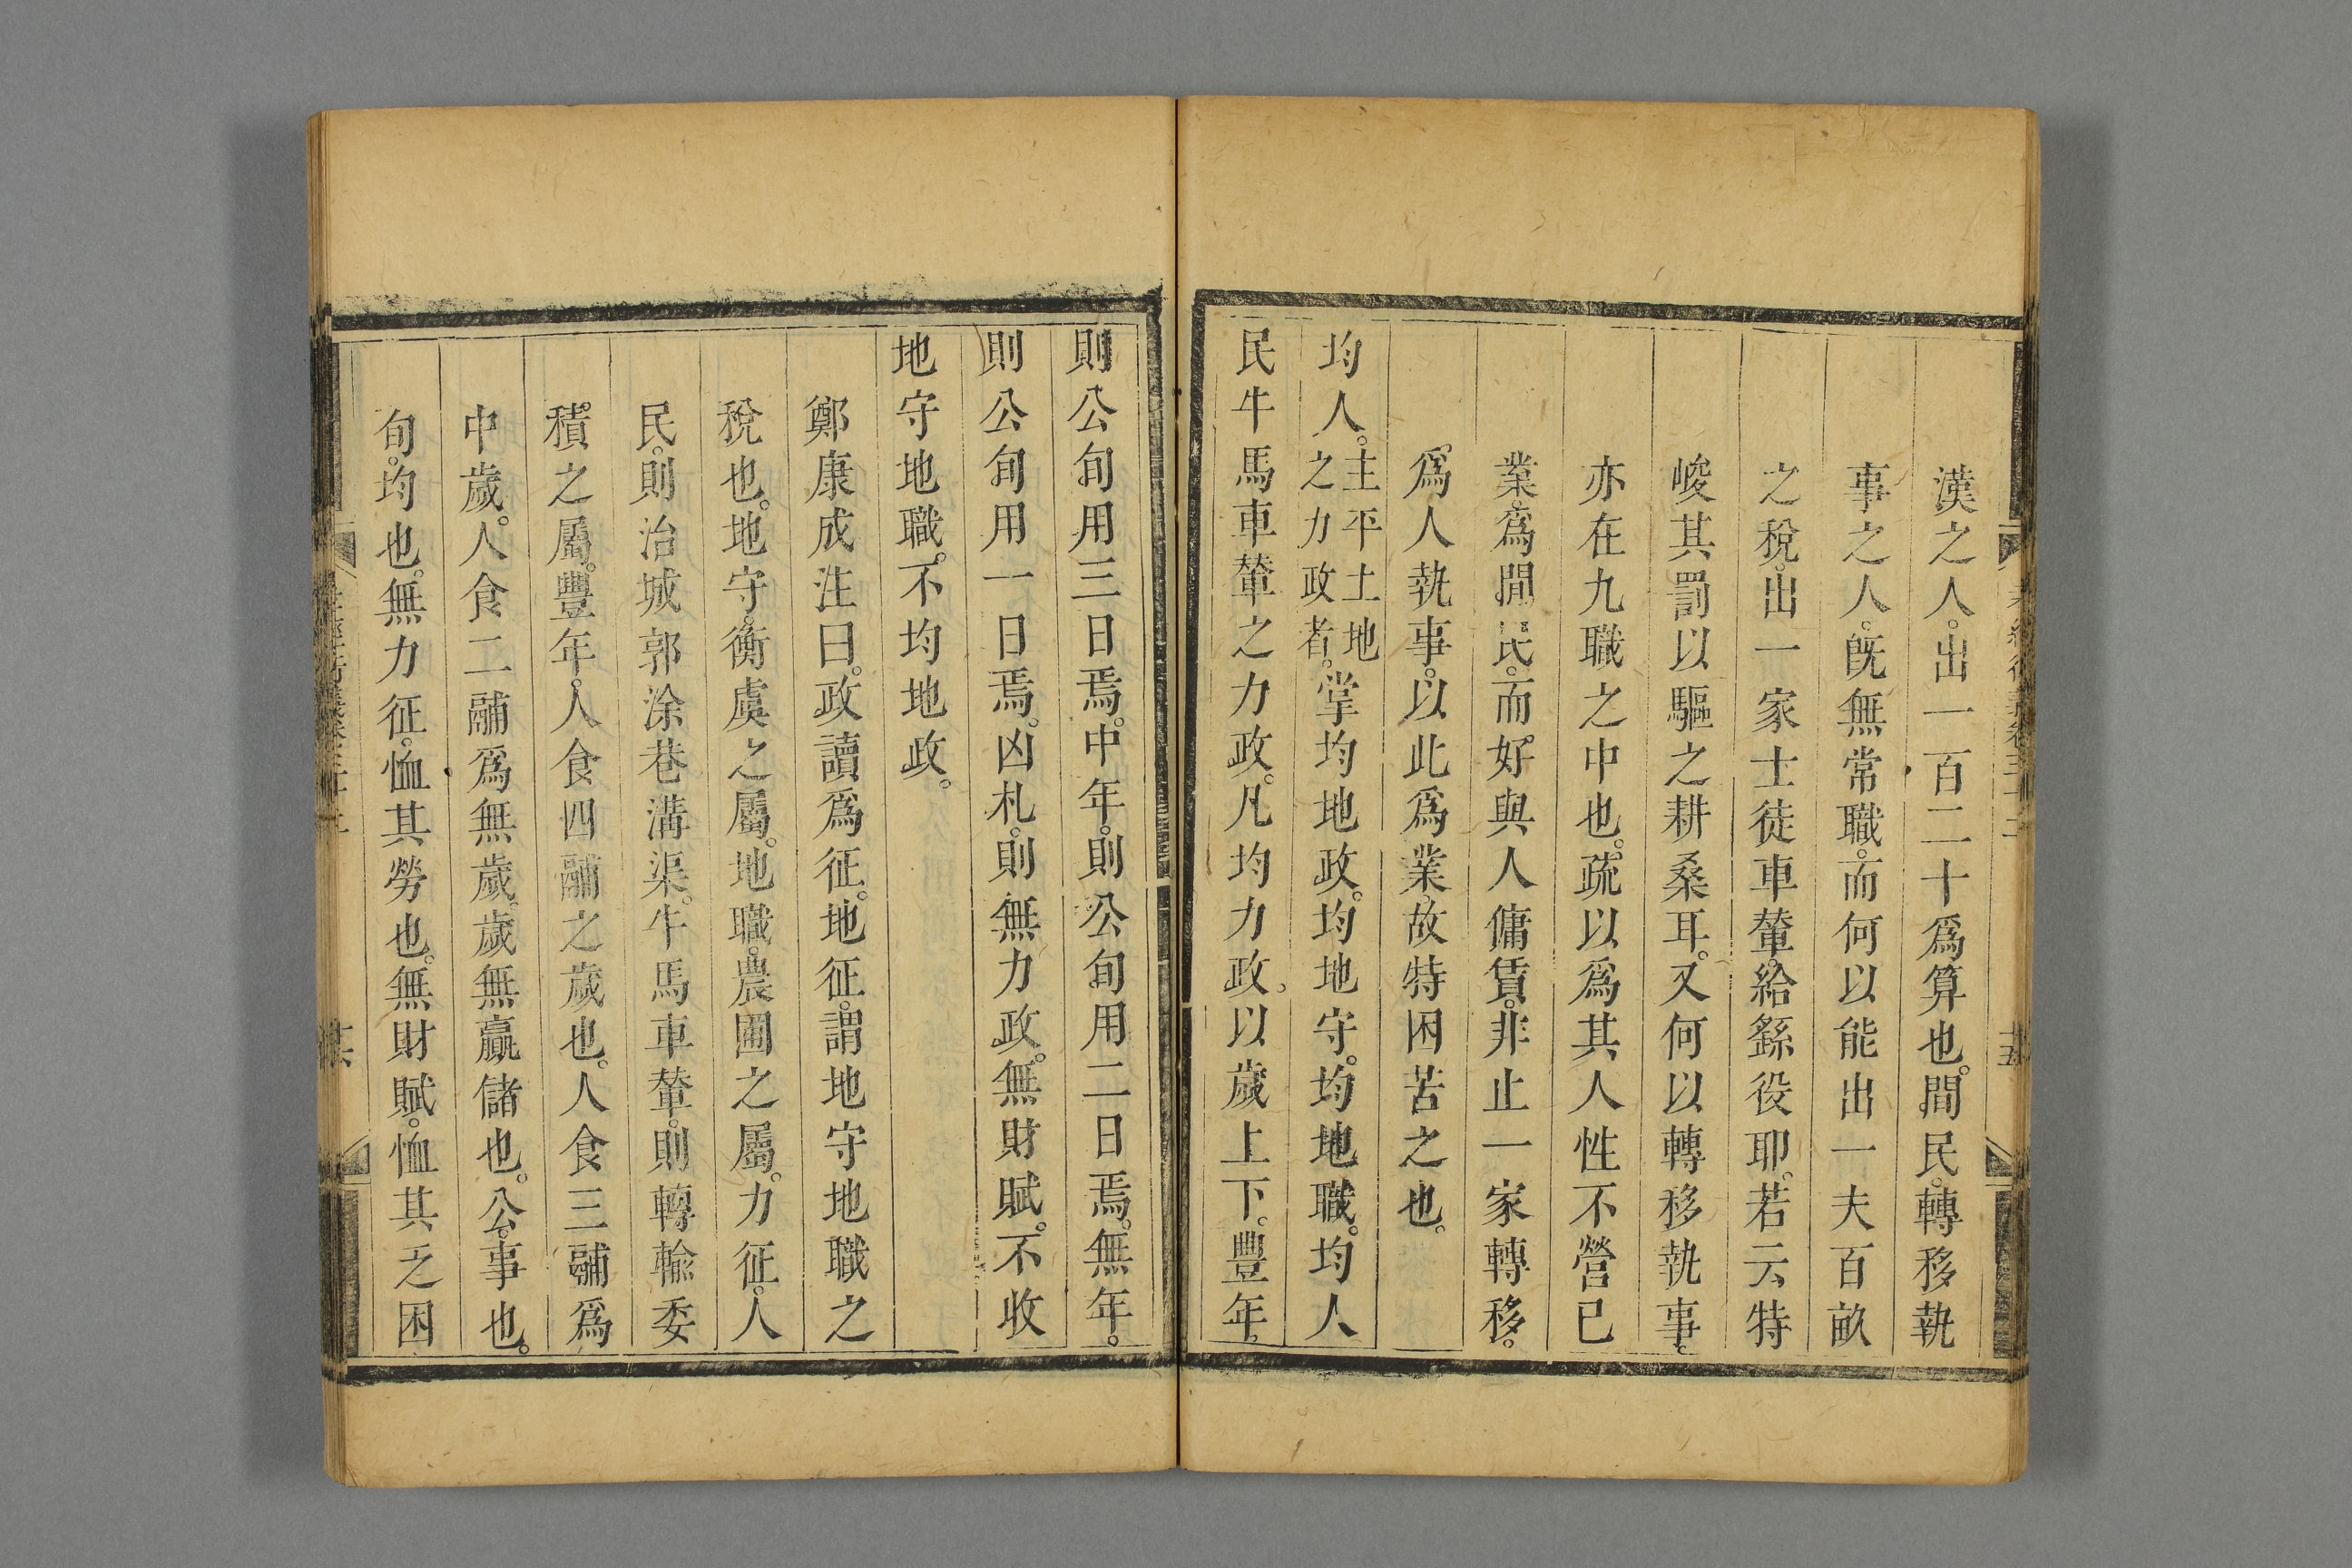 漢之人。出一百二十爲算也。間民。轉移執
事之人。旣無常職。而何以能出一夫百畝
之稅。出一家士徒車輦。給繇役耶。若云特
峻其罰以驅之耕桑耳。又何以轉移執事。
亦在九職之中也。疏以爲其人性不營已
業。爲閒民。而好與人傭賃。非止一家轉移。
爲人執事。以此爲業。故特困苦之也。
均人。主平土地之力政者。掌均地政。均地守。均地職。均人
民牛馬車輦之力政。凡均力政。以歲上下。豐年。
則公旬用三日焉。中年。則公旬用二日焉。無年。
則公旬用一日焉。凶札。則無力政。無財賦。不收
地守地職。不均地政。
鄭康成注曰。政讀爲征。地征。謂地守地職之
稅也。地守。衡虞之屬。地職。農圃之屬。力征。人
民。則治城郭涂巷溝渠。牛馬車輦。則轉輸委
積之屬。豐年。人食四鬴之歲也。人食三鬴爲
中歲。人食二鬴爲無歲。歲無贏儲也。公。事也。
旬。均也。無力征。恤其勞也。無財賦。恤其乏困